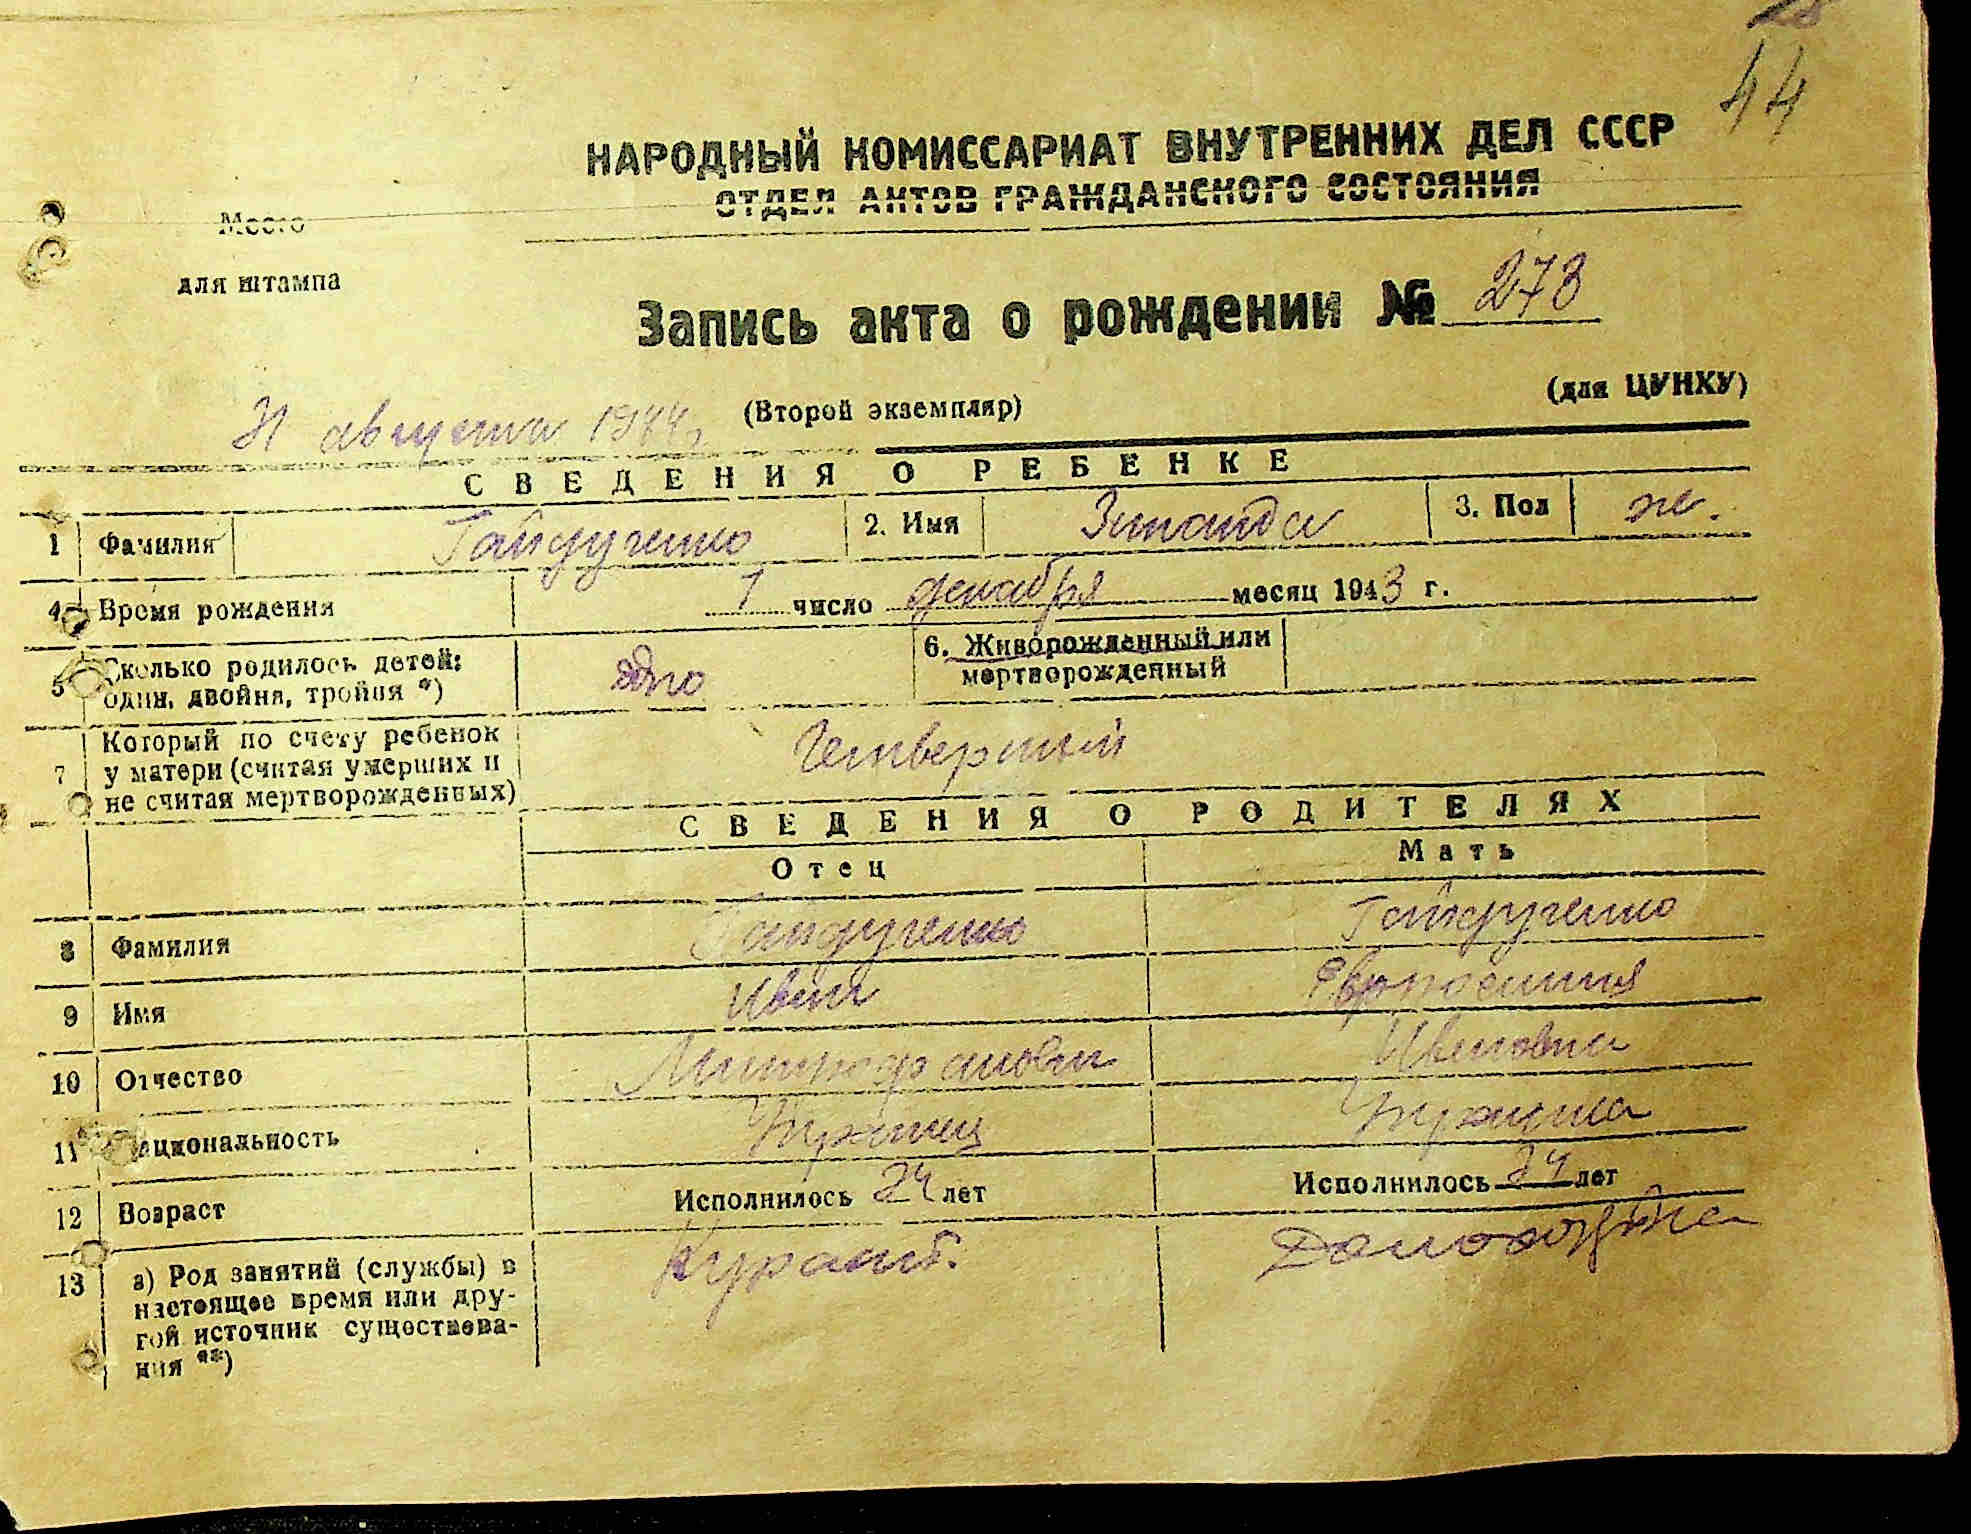 44
НАРОДНЫЙ КОМИССАРИАТ ВНУТРЕННИХ ДЕЛ СССР
ОТДЕЛ АКТОВ ГРАЖДАНСКОГО СОСТОЯНИЯ
Место
для штампа
Запись акта о рождении № 273
31 августа 1944 г. (Второй экземпляр) (для ЦУНХУ)
СВЕДЕНИЯ О РЕБЕНКЕ
1 Фамилия Гайдученко 2. Имя Зинаида 3. Пол ж.
4 Время рождения 1 число декабря месяц 1943 г.
5 Сколько родилось детей: один, двойня, тройня *) одно 6. Живорожденный или мертворожденный
7 Который по счету ребенок у матери (считая умерших и не считая мертворожденных) Четвертый
СВЕДЕНИЯ О РОДИТЕЛЯХ
Отец Мать
8 Фамилия Гайдученко Гайдученко
9 Имя Иван Евросиния
10 Отчество Митрофанович Ивановна
11 Национальность Украинец Украинка
12 Возраст Исполнилось 24 лет Исполнилось 24 лет
13 а) Род занятий (службы) в
настоящее время или дру-
гой источник существова-
ния **)
Домохозяйка